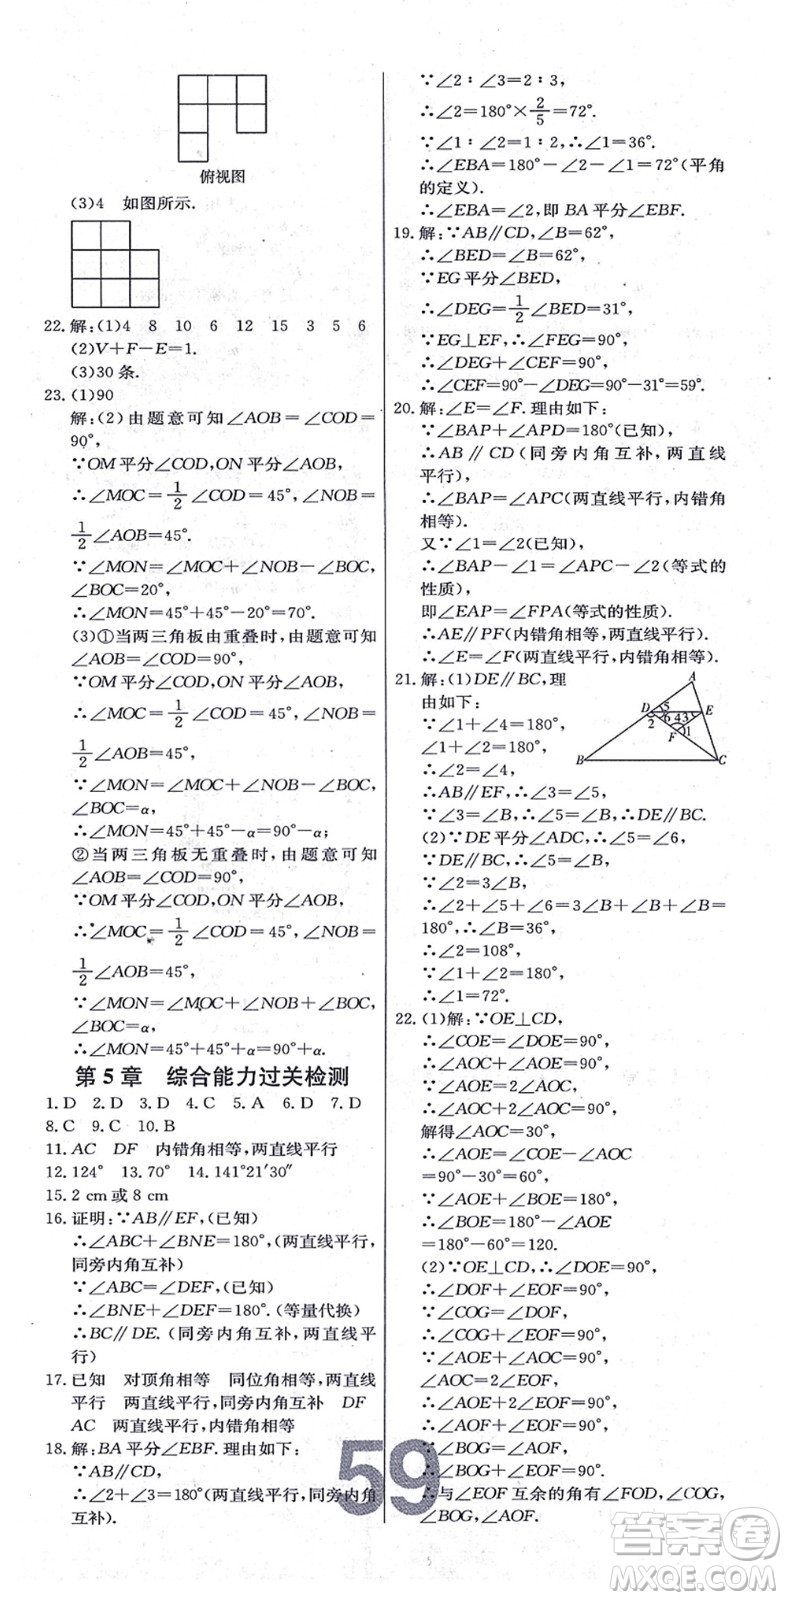 俯视图
(3)4 如图所示.
22.解:(1)4 8 10 6 12 15 3 5 6
(2)V+F-E=1.
(3)30条.
23.(1)90
解:(2)由题意可知∠AOB=∠COD=
90°,
∵OM平分∠COD,ON平分∠AOB,
∴∠MOC=1/2∠COD=45°,∠NOB=
1/2∠AOB=45°.
∵∠MON=∠MOC+∠NOB-∠BOC,
∠BOC=20°,
∴∠MON=45°+45°-20°=70°.
(3)①当两三角板由重叠时,由题意可知
∠AOB=∠COD=90°,
∵OM平分∠COD,ON平分∠AOB,
∴∠MOC=1/2∠COD=45°,∠NOB=
1/2∠AOB=45°,
∵∠MON=∠MOC+∠NOB-∠BOC,
∠BOC=α,
∴∠MON=45°+45°-α=90°-α;
②当两三角板无重叠时,由题意可知
∠AOB=∠COD=90°,
∵OM平分∠COD,ON平分∠AOB,
∴∠MOC=1/2∠COD=45°,∠NOB=
1/2∠AOB=45°,
∵∠MON=∠MOC+∠NOB+∠BOC,
∠BOC=α,
∴∠MON=45°+45°+α=90°+α.
第5章 综合能力过关检测
1.D 2.D 3.D 4.C 5.A 6.D 7.D
8.C 9.C 10.B
11.AC DF 内错角相等,两直线平行
12.124° 13.70° 14.141°21′30″
15.2 cm或8 cm
16.证明:∵AB∥EF,(已知)
∴∠ABC+∠BNE=180°,(两直线平行,
同旁内角互补)
∵∠ABC=∠DEF,(已知)
∴∠BNE+∠DEF=180°.(等量代换)
∴BC∥DE.(同旁内角互补,两直线平
行)
17.已知 对顶角相等 同位角相等,两直线
平行 两直线平行,同旁内角互补 DF
AC 两直线平行,内错角相等
18.解:BA平分∠EBF.理由如下:
∵AB∥CD,
∴∠2+∠3=180°(两直线平行,同旁内角
互补).
∵∠2∶∠3=2∶3,
∴∠2=180°×2/5=72°.
∵∠1∶∠2=1∶2,∴∠1=36°.
∴∠EBA=180°-∠2-∠1=72°(平角
的定义).
∴∠EBA=∠2,即BA平分∠EBF.
19.解:∵AB∥CD,∠B=62°,
∴∠BED=∠B=62°,
∵EG平分∠BED,
∴∠DEG=1/2∠BED=31°,
∵EG⊥EF,∴∠FEG=90°,
∴∠DEG+∠CEF=90°,
∴∠CEF=90°-∠DEG=90°-31°=59°.
20.解:∠E=∠F.理由如下:
∵∠BAP+∠APD=180°(已知),
∴AB∥CD(同旁内角互补,两直线
平行),
∴∠BAP=∠APC(两直线平行,内错角
相等).
又∵∠1=∠2(已知),
∴∠BAP-∠1=∠APC-∠2(等式的
性质),
即∠EAP=∠FPA(等式的性质).
∴AE∥PF(内错角相等,两直线平行).
∴∠E=∠F(两直线平行,内错角相等).
21.解:(1)DE∥BC,理
由如下:
∵∠1+∠4=180°,
∠1+∠2=180°,
∴∠2=∠4,
∴AB∥EF,∴∠3=∠5,
∵∠3=∠B,∴∠5=∠B,∴DE∥BC.
(2)∵DE平分∠ADC,∴∠5=∠6,
∵DE∥BC,∴∠5=∠B,
∵∠2=3∠B,
∴∠2+∠5+∠6=3∠B+∠B+∠B=
180°,∴∠B=36°,
∴∠2=108°,
∵∠1+∠2=180°,
∴∠1=72°.
A
D 5 E
2 6 4 3
F 1
B C
22.(1)解:∵OE⊥CD,
∴∠COE=∠DOE=90°,
∴∠AOC+∠AOE=90°,
∵∠AOE=2∠AOC,
∴∠AOC+2∠AOC=90°,
解得∠AOC=30°,
∴∠AOE=∠COE-∠AOC
=90°-30°=60°,
∵∠AOE+∠BOE=180°,
∴∠BOE=180°-∠AOE
=180°-60°=120.
(2)∵OE⊥CD,∴∠DOE=90°,
∴∠DOF+∠EOF=90°,
∵∠COG=∠DOF,
∴∠COG+∠EOF=90°,
∵∠AOE=2∠EOF,∠AOE+
∠AOC=90°,
∴∠AOE+2∠EOF=90°,
∴∠AOF+∠EOF=90°,
∵∠BOG=∠AOF,
∴∠BOG+∠EOF=90°,
∴与∠EOF互余的角有∠FOD,∠COG,
∠BOG,∠AOF.
59
答案圈
MXQE.COM